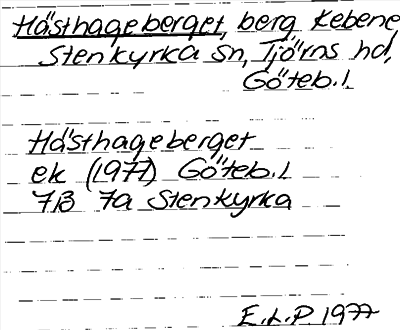 Hästhageberget, berg Kebene
Stenkyrka sn, Tjörns hd,
Göteb. l.
Hästhageberget
ek (1977) Göteb. l
7B 7a Stenkyrka
E.L.P 1977